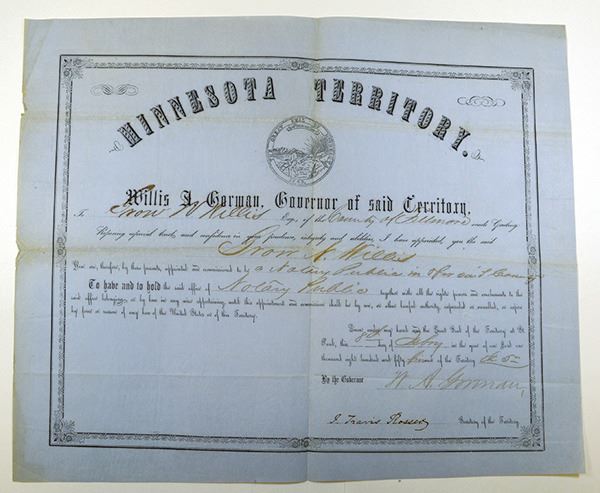 MINNESOTA TERRITORY.
Willis A. Gorman, Governor of said Territory,
To Willis Esq. of the County of Fillmore sends Greeting
Reposing especial trust, and confidence in your prudence, integrity and abilities, I have appointed you the said
Willis
You are, therefore, by these presents, appointed and commissioned to be a Notary Public in & for said County
To have and to hold the said office of Notary Public together with all the rights powers and emoluments to the
said office belonging, or by law in any wise appertaining, until this appointment and commission shall be by me, or other lawful authority, superseded or annulled, or expire
by force or reason of any law of the United States or of this Territory.
Given under my hand and the Great Seal of the Territory at St.
Paul, this day of Feby in the year of our Lord one
thousand eight hundred and fifty of the Territory the
By the Governor W. A. Gorman,
J. Travis Rosser Secretary of the Territory